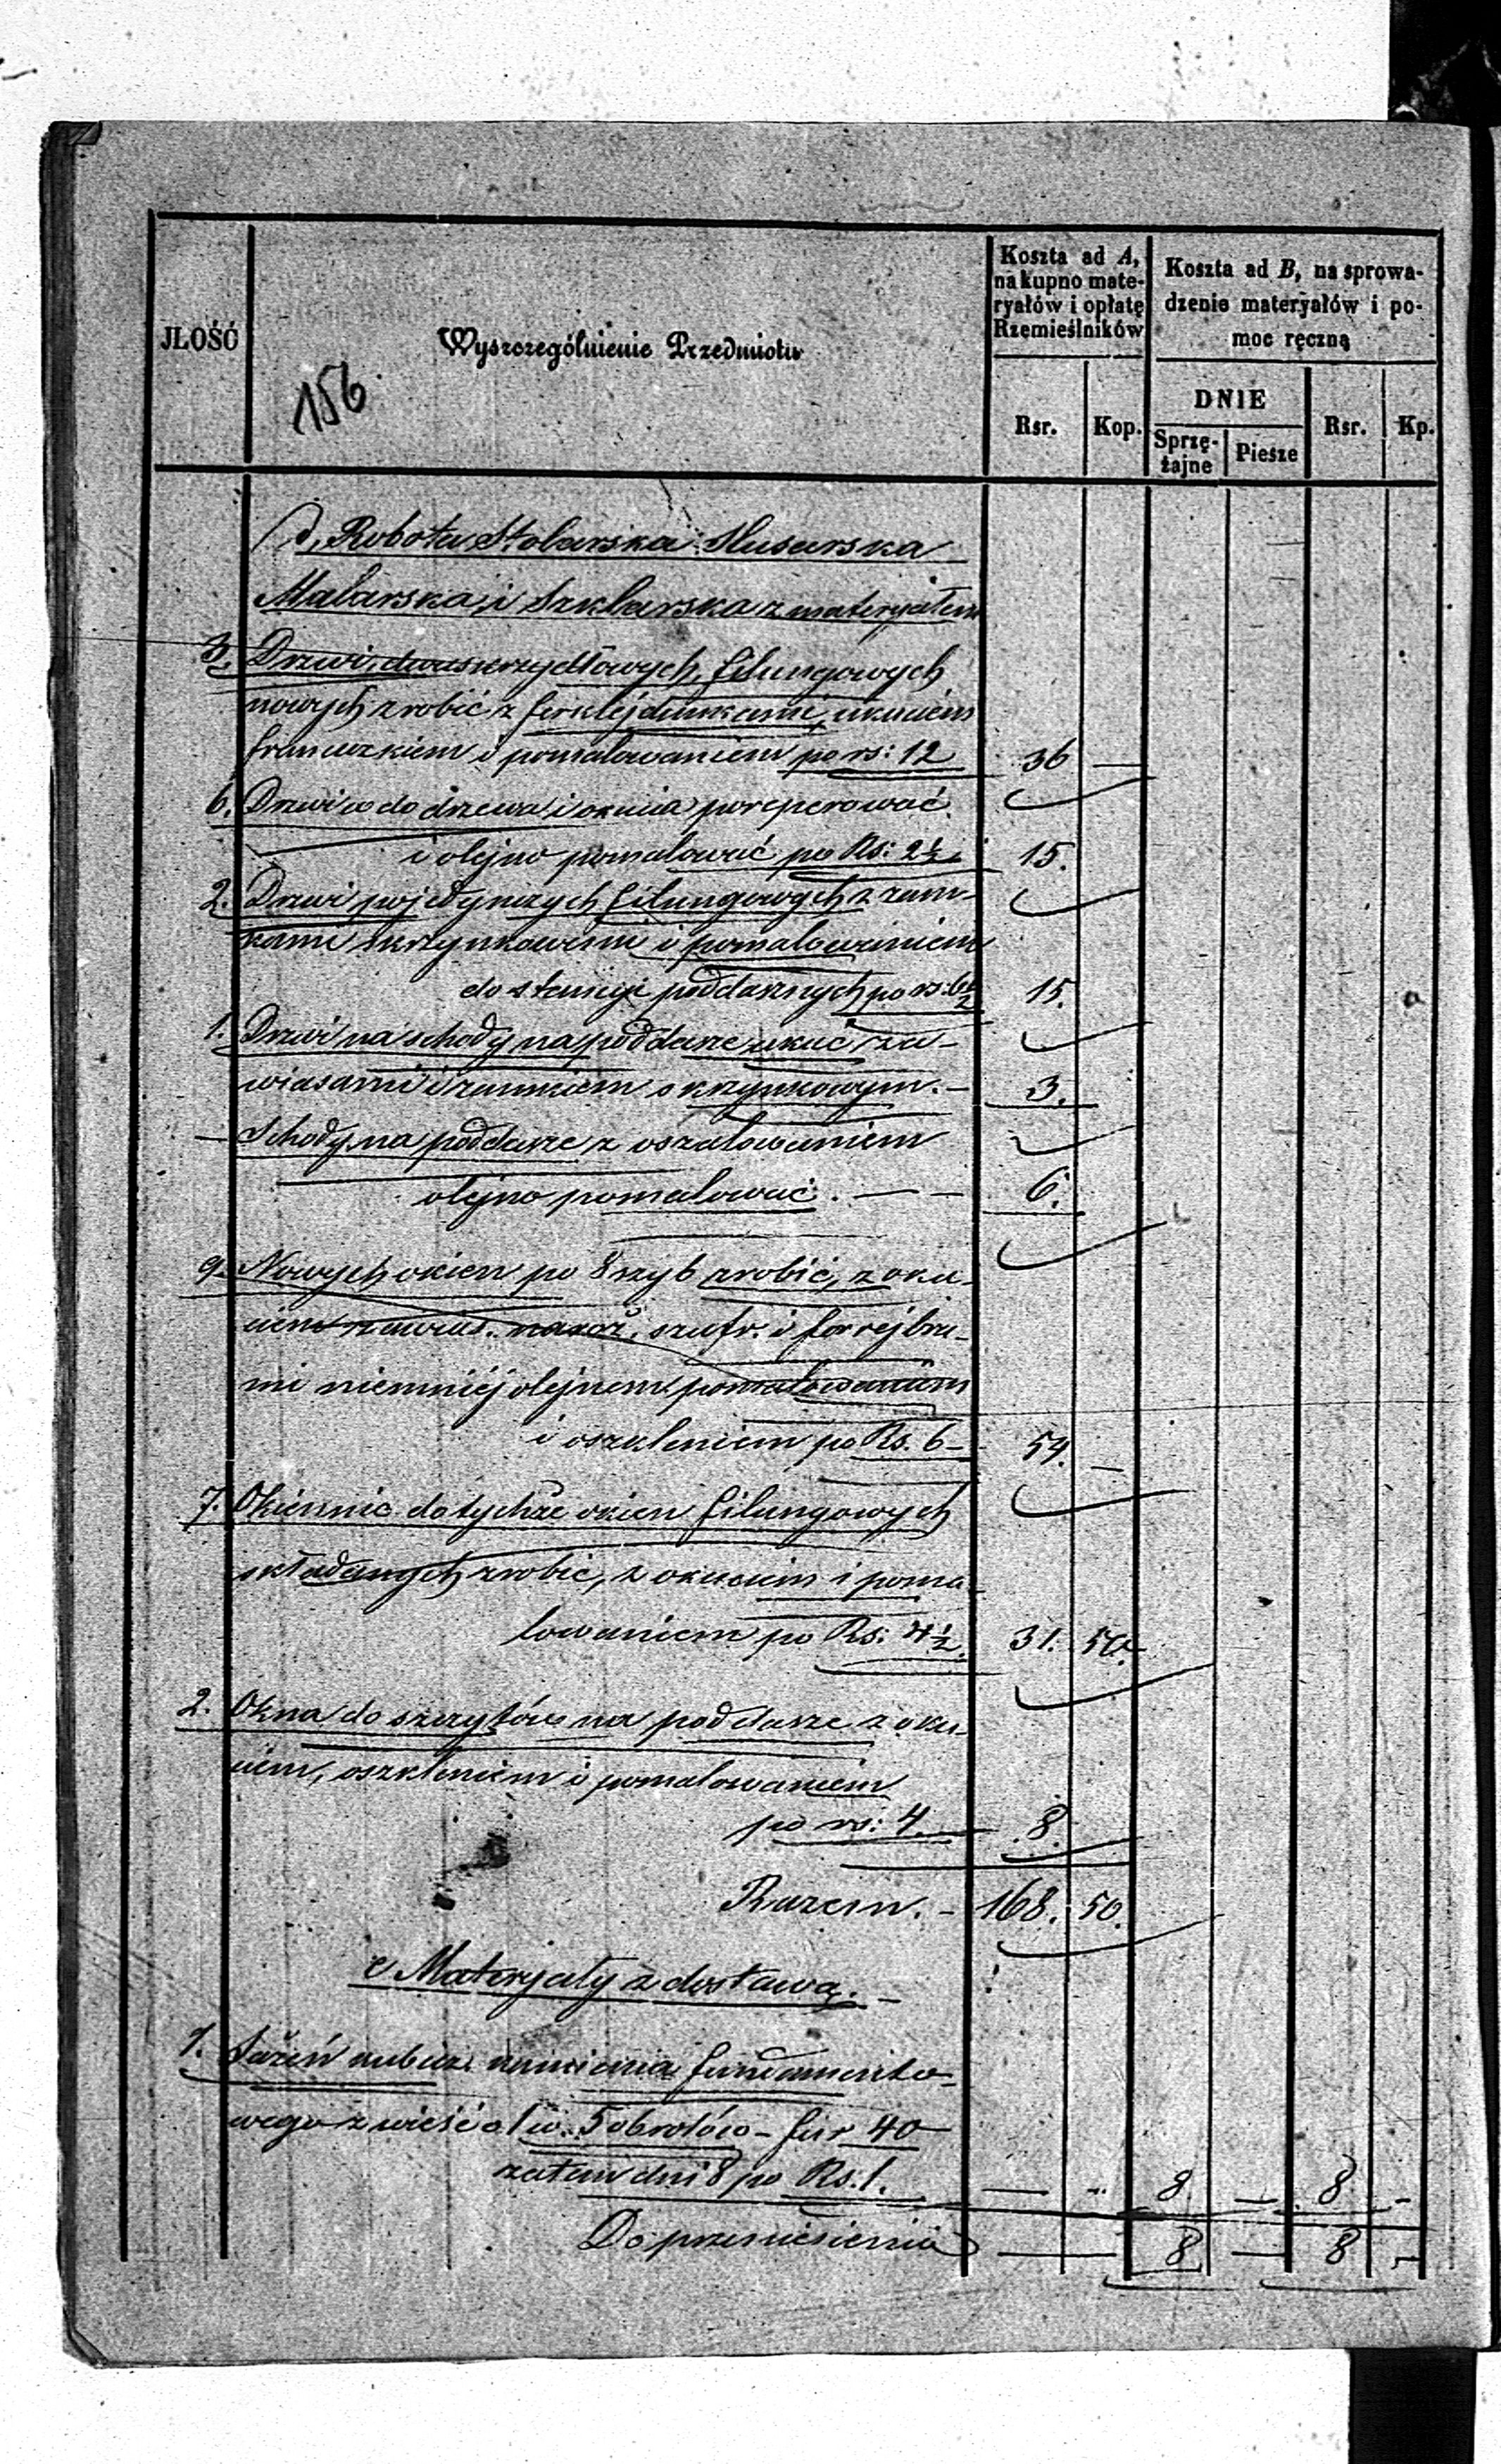 JŁOŚĆ
Wyszczególnienie Przedmiotu
156
Koszta ad A,
na kupno mate-
ryałów i opłatę
Rzemieślników
Koszta ad B, na sprowa-
dzenie materyałów i po-
moc ręczną
Rsr.
Kop.
DNIE
Sprzę-
żajne
Piesze
Rsr.
Kp.
d, Robota Stolarska Slusarska
Malarska i Szklarska z materyałem
3. Drzwi dwuskrzydłowych filungowych
nowych zrobić z ferklejdunkami, ukuciem
francuzkiem i pomalowaniem po rs: 12 36 —
6. Drzwi co do drzewa i okucia poreperować
i olejno pomalować po Rs: 2½ 15.
2. Drzwi pojedynczych filungowych z zam-
kami skrzynkowemi i pomalowaniem
do poddasznych po rs: 15.
1. Drzwi na schody na poddasze ukuć, za-
wiasami i zamkiem skrzynkowym. — 3.
— Schody na poddasze z oszalowaniem
olejno pomalować. — — 6.
9. Nowych okien po 8 szyb zrobić, z oku-
ciem zawias. naroż. szufr. i forrejbra-
mi niemniéj olejnem pomalowaniem
i oszkleniem po Rs. 6 — 54. —
7. Okiennic do tychże okien filungowych
składanych zrobić, z okuciem i poma-
lowaniem po Rs: 4½ 31. 50.
2. Okna do szczytów na poddasze z oku-
ciem, oszkleniem i pomalowaniem
po rs: 4. — 8.
Razem. — 168. 50.
e Materyały z dostawą. —
1. Sążeń kubicz. kamienia fundamento-
wego zwieść o 1 w. 5 obrotów — fur 40
zatem dni 8 po Rs: 1. — „ 8 — 8 —
Do przeniesienia — 8 — 8 —